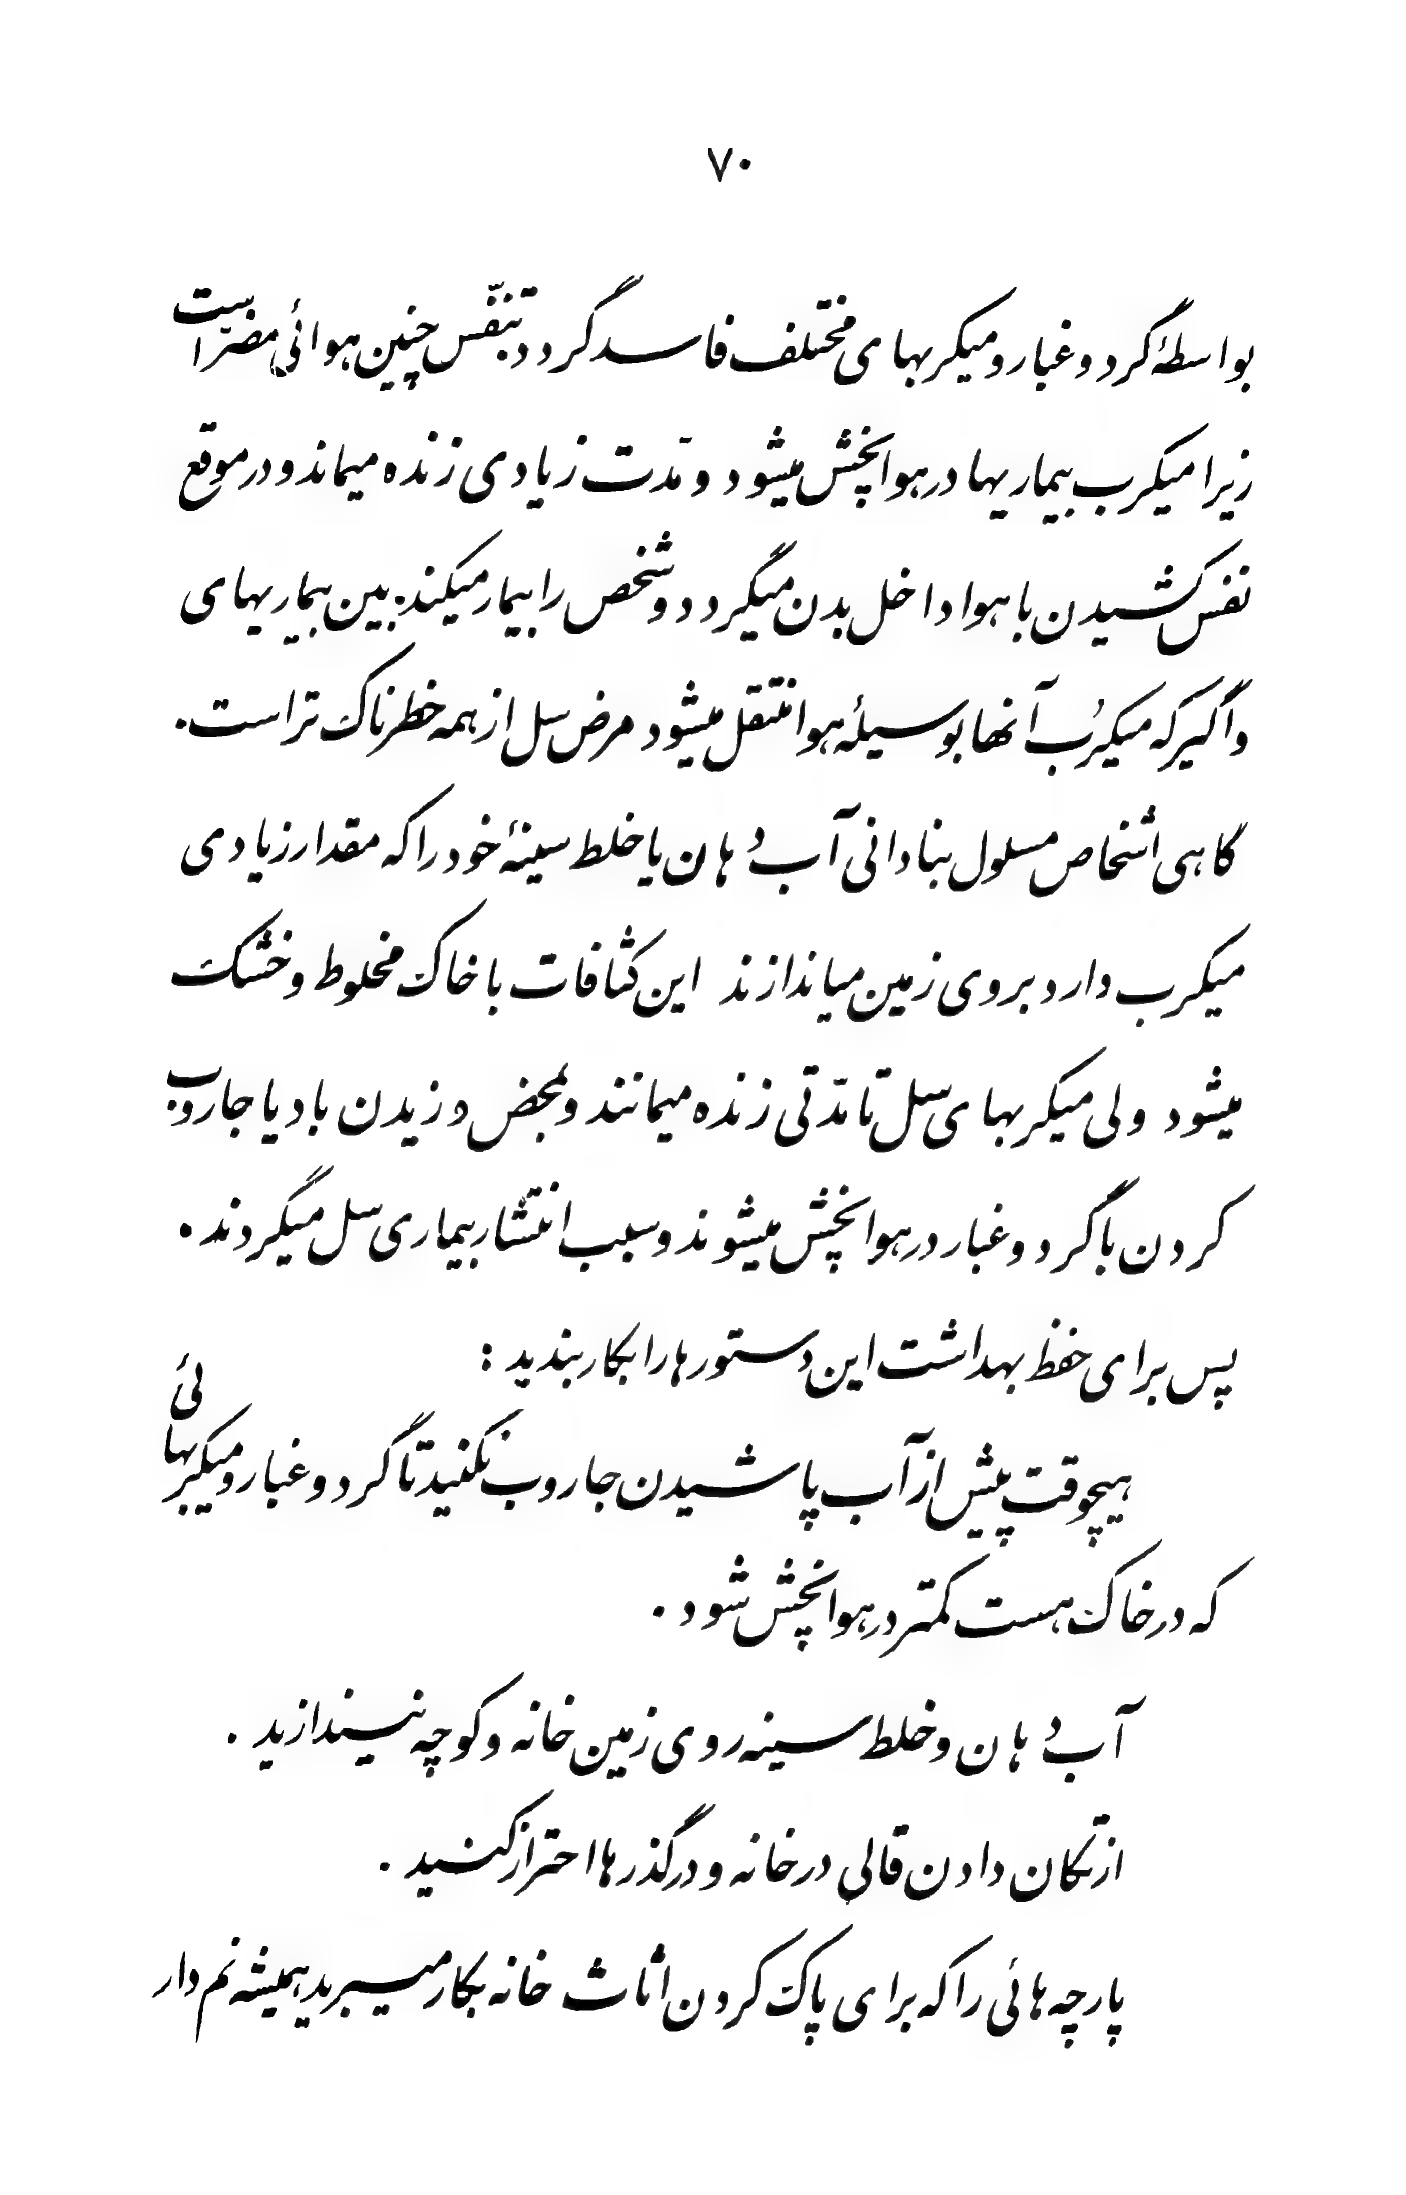 ۷۰
بواسطهٔ گرد و غبار و میکربهای مختلف فاسد گردد تنفّس چنین هوائی مضرّ است
زیرا میکرب بیماریها در هوا پخش میشود و مدّت زیادی زنده میماند و در موقع
نفس کشیدن با هوا داخل بدن میگردد و شخص را بیمار میکند. بین بیماریهای
واگیر که میکرُب آنها بوسیلهٔ هوا منتقل میشود مرض سل از همه خطرناک تر است.
گاهی اشخاص مسلول بنادانی آب دهان یا خلط سینهٔ خود را که مقدار زیادی
میکرب دارد بروی زمین میاندازند این کثافات با خاک مخلوط و خشک
میشود ولی میکربهای سل تا مدّتی زنده میمانند و بمحض وزیدن باد یا جاروب
کردن با گرد و غبار در هوا پخش میشوند و سبب انتشار بیماری سل میگردند.
پس برای حفظ بهداشت این دستورها را بکار بندید :
هیچوقت پیش از آب پاشیدن جاروب نکنید تا گرد و غبار و میکربهائی
که در خاک هست کمتر در هوا پخش شود .
آب دهان و خلط سینه روی زمین خانه و کوچه نیندازید .
از تکان دادن قالی در خانه و در گذرها احتراز کنید .
پارچه هائی را که برای پاک کردن اثاث خانه بکار میبرید همیشه نم دار